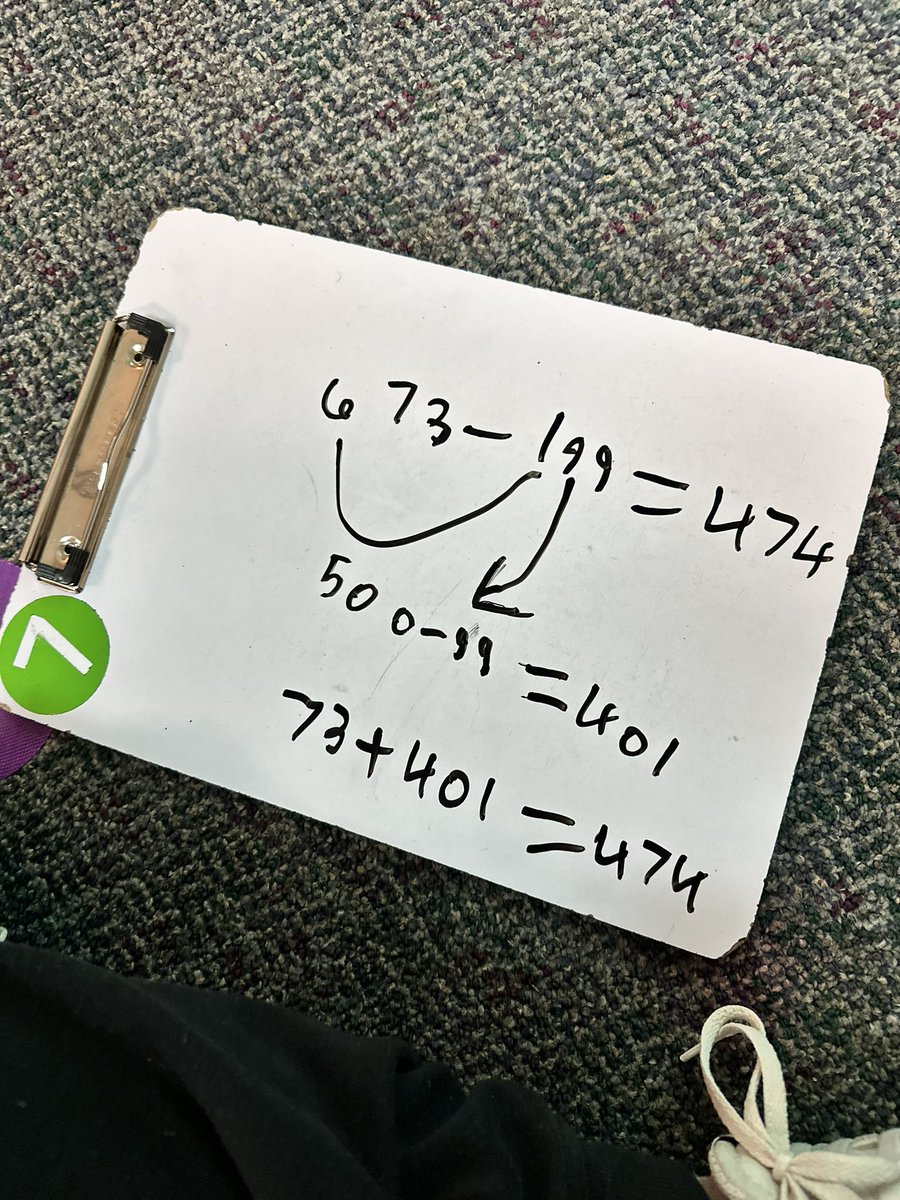 673-199=474
500-99=401
73+401=474
7